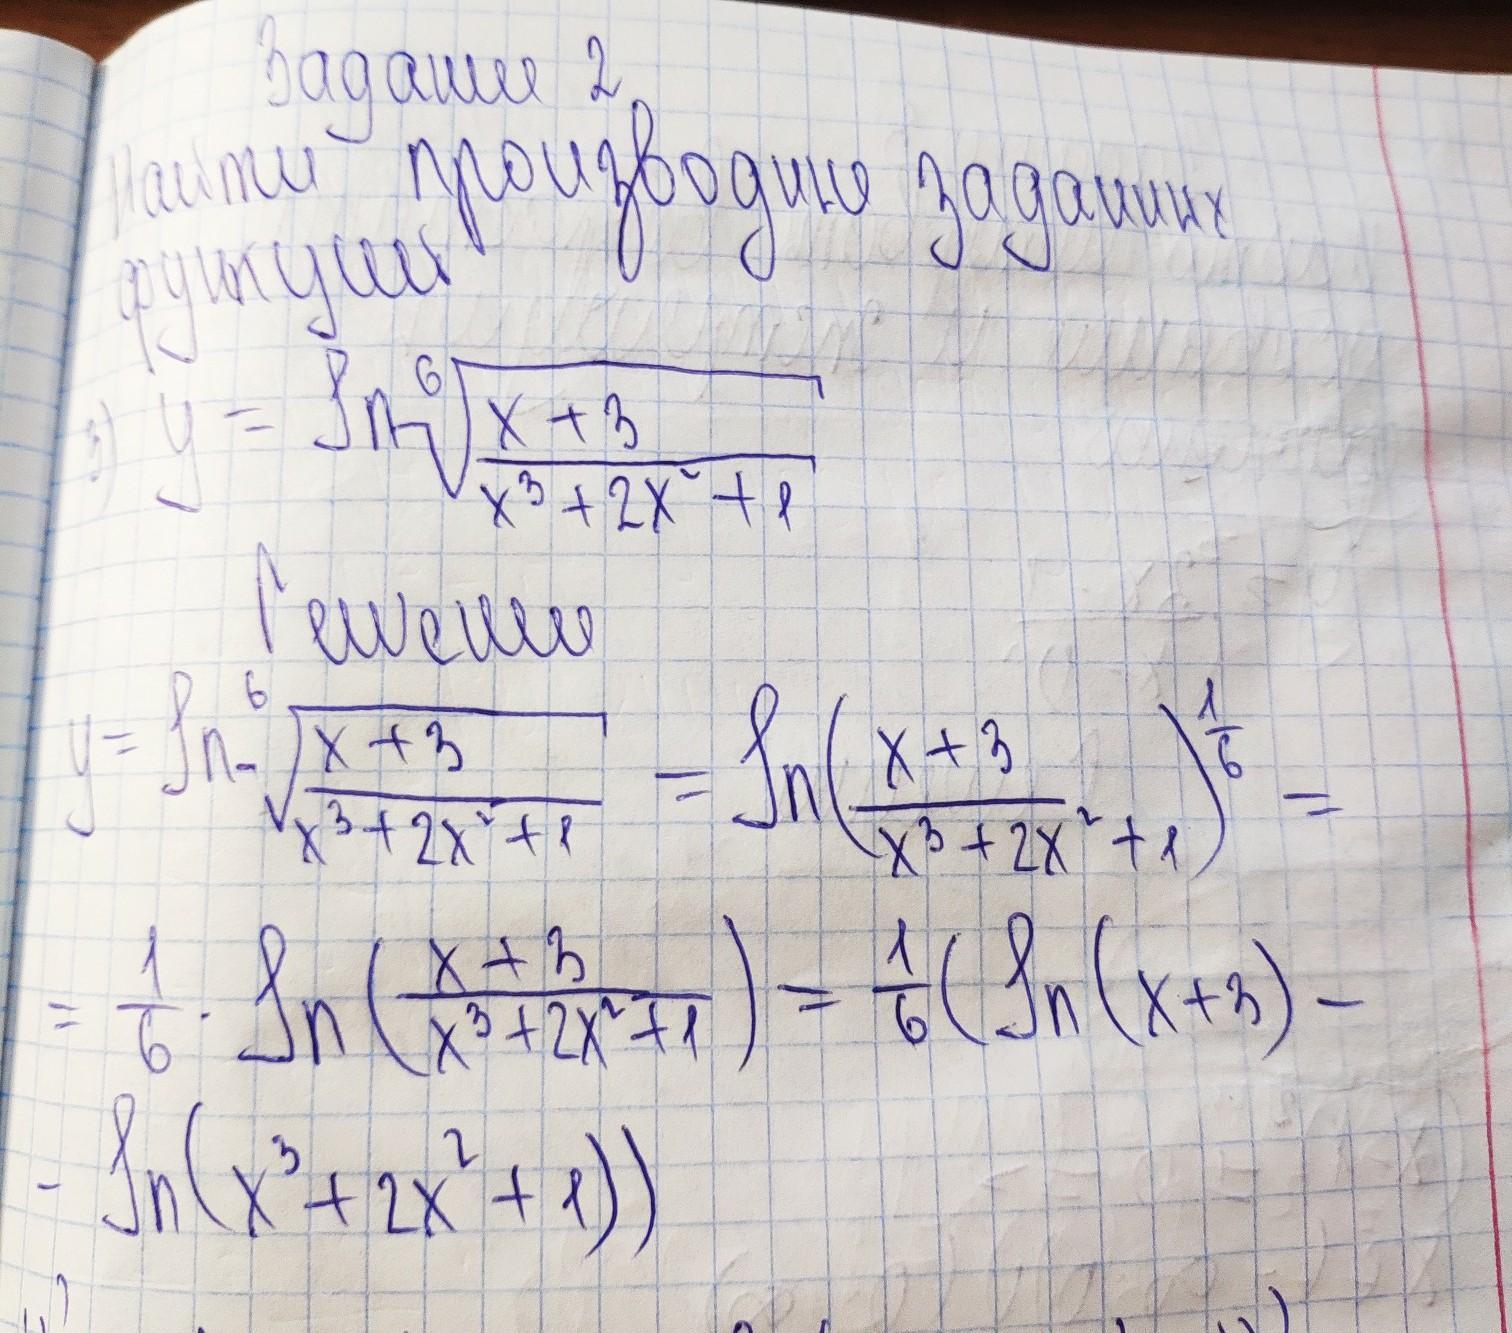 Задание 2
Найти производные заданных
функций
3) y = ln ⁶√((x+3)/(x³+2x²+1))
Решение
y = ln ⁶√((x+3)/(x³+2x²+1)) = ln((x+3)/(x³+2x²+1))^(1/6) =
= 1/6 · ln((x+3)/(x³+2x²+1)) = 1/6(ln(x+3) −
− ln(x³+2x²+1))